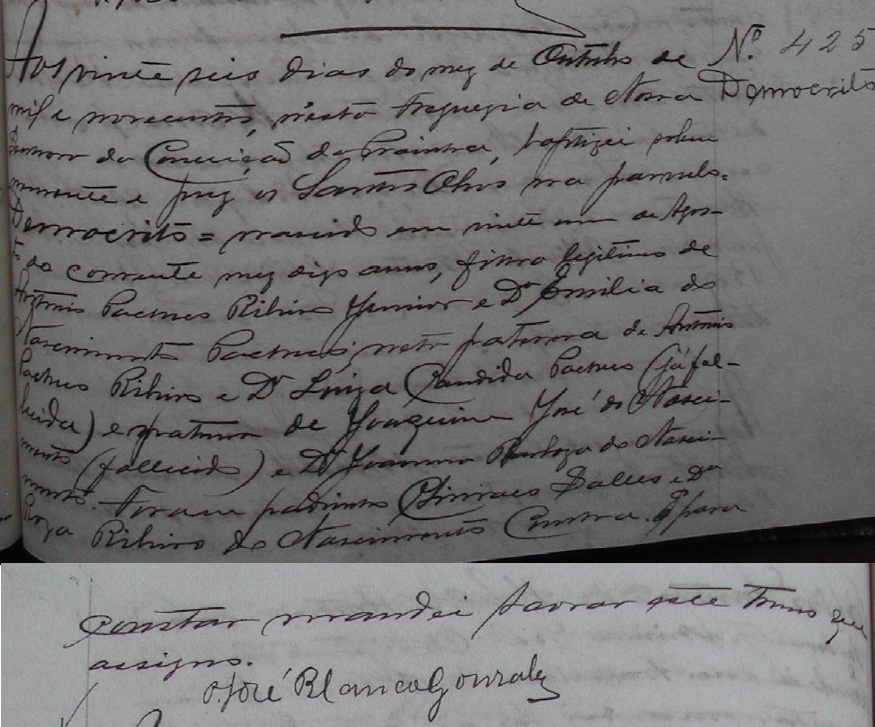 Nº 425
Democrito
Aos vinte seis dias do mez de Outubro de
mil e novecentos, nesta Freguezia de Nossa
Senhora da Conceição da Praínha, baptizei solem
nemente e puz os Santos Oleos no parvulo
Democrito = nascido em vinte um de Agos-
to do corrente mez digo anno, filho legitimo de
Antonio Pacheco Ribeiro Junior e Dª Emilia do
Nascimento Pacheco, neto paterno de Antonio
Pacheco Ribeiro e Dª Luiza Candida Pacheco (já fal-
lecida) e materno de Joaquim José do Nasci-
mento (fallecido) e Dª Joanna Barboza do Nasci-
mento. Foram padrinhos e Dª
Roza Ribeiro do Nascimento. E para
constar mandei lavrar este termo que
assigno.
P. José Blanco Gonzalez